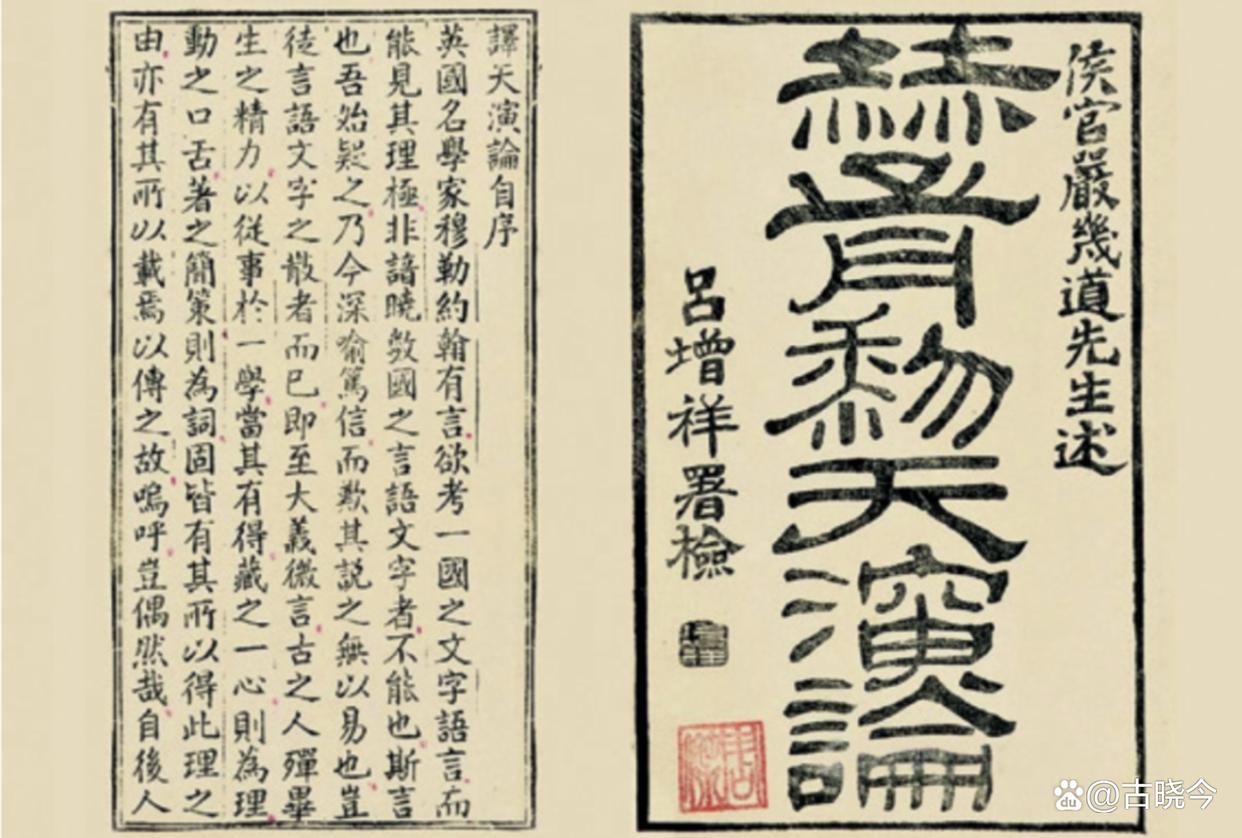 侯官嚴幾道先生述
赫胥黎天演論
呂增祥署檢
譯天演論自序
英國名學家穆勒約翰有言欲考一國之文字語言而
能見其理極非諳曉數國之言語文字者不能也斯言
也吾始疑之乃今深喻篤信而歎其說之無以易也豈
徒言語文字之散者而已即至大義微言古之人殫畢
生之精力以從事於一學當其有得藏之一心則為理
動之口舌著之簡策則為詞固皆有其所以得此理之
由亦有其所以載焉以傳之故嗚呼豈偶然哉自後人
@古晓今